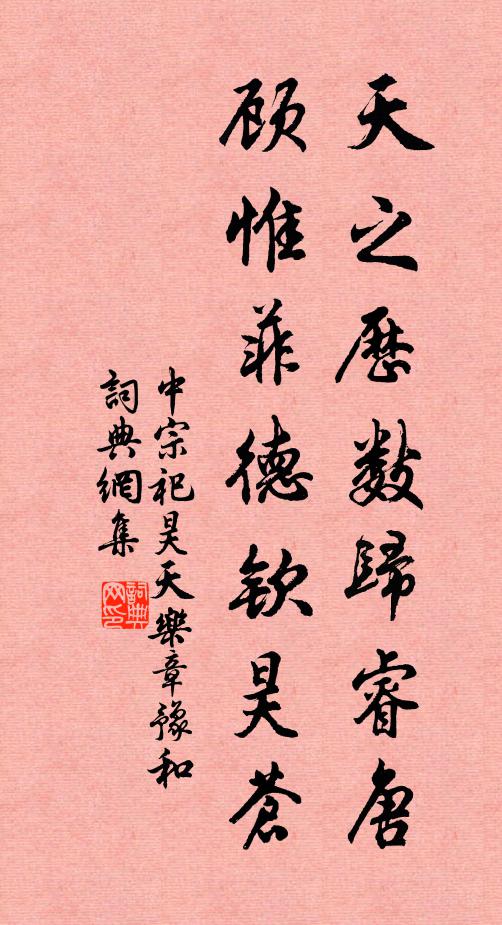 天之歷數歸睿唐
顧惟菲德欽昊蒼
中宗祀昊天樂章豫和
詞典網集
詞典網印